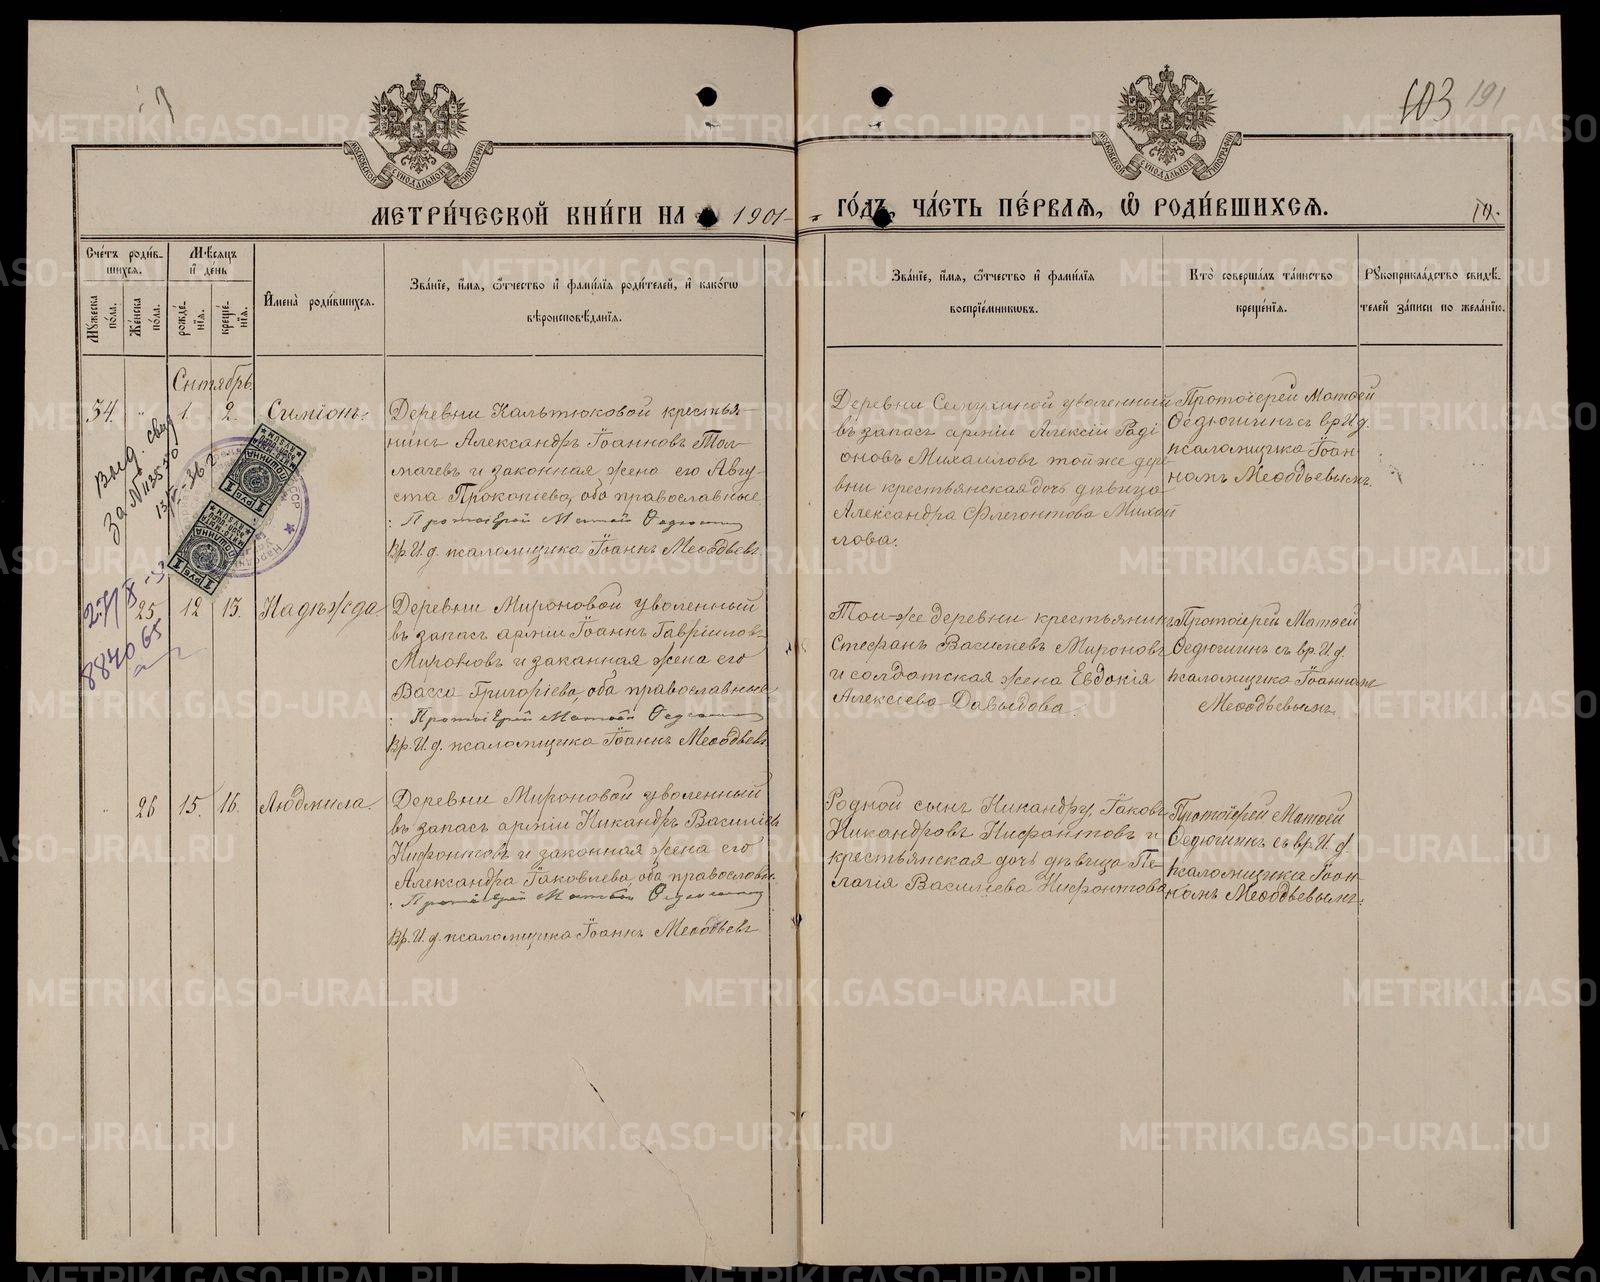 403 191
МЕТРИ́ЧЕСКОЙ КНИ́ГИ НА 1901 ГО́ДЪ, ЧА́СТЬ ПЕ́РВАЯ, Ѿ РОДИ́ВШИХСЯ.
Сче́тъ роди́в-
шихся.
Мѣ́сяцъ
и де́нь
Му́жеска
по́ла.
Же́нска
по́ла.
рожде́-
нія.
креще́-
нія.
Имена̀ роди́вшихся.
Зва́ніе, и́мя, ѻ́тчество и фами́лія роди́телей, и како́гѡ
вѣроисповѣ́данія.
Зва́ніе, и́мя, ѻ́тчество и фами́лія
воспріе́мникѡвъ.
Кто̀ соверша́лъ та́инство
креще́нія.
Рукоприкла́дство свидѣ́-
телей за́писи по жела́нію.
Сентябрь.
34. " 1. 2. Симіонъ.
Деревни Кальтюковой крестья-
нинъ Александръ Іоанновъ Тол-
мачевъ и законная жена его Авгу-
ста Прокопіева, оба православные
Протоіерей Матѳей Ѳедюшинъ
Вр. И. д. псаломщика Іоаннъ Меѳодьевъ.
Деревни Семухиной уволенный
въ запасъ арміи Алексій Роді
оновъ Михаиловъ той же дере
вни крестьянская дочь дѣвица
Александра Флегонтова Михай
лова.
Протоіерей Матѳей
Ѳедюшинъ съ вр. И. д.
псаломщика Іоан-
номъ Меѳодьевымъ.
Выд. свид
За № 113550
13/V-36 г.
27/X
884065
25 12 13. Надѣжда
Деревни Мироновой уволенный
въ запасъ арміи Іоаннъ Гавріиловъ
Мироновъ и законная жена его
Васса Григоріева, оба православные
Протоіерей Матѳей Ѳедюшинъ
Вр. И. д. псаломщика Іоаннъ Меѳодьевъ
Той-же деревни крестьянинъ
Стефанъ Василіевъ Мироновъ
и солдатская жена Евдокія
Алексіева Давыдова.
Протоіерей Матѳей
Ѳедюшинъ съ вр. И. д.
псаломщика Іоанномъ
Меѳодьевымъ
26 15. 16. Людмила.
Деревни Мироновой уволенный
въ запасъ арміи Никандръ Василіевъ
Нифонтовъ и законная жена его
Александра Іаковлева, оба православн.
Протоіерей Матѳей Ѳедюшинъ
Вр. И. д. псаломщика Іоаннъ Меѳодьевъ
Родной сынъ Никандру, Іаковъ
Никандровъ Нифонтовъ и
крестьянская дочь дѣвица Пе-
лагія Василіева Нифонтова
Протоіерей Матѳей
Ѳедюшинъ съ вр. И. д.
псаломщика Іоан-
номъ Меѳодьевымъ.
METRIKI.GASO-URAL.RU